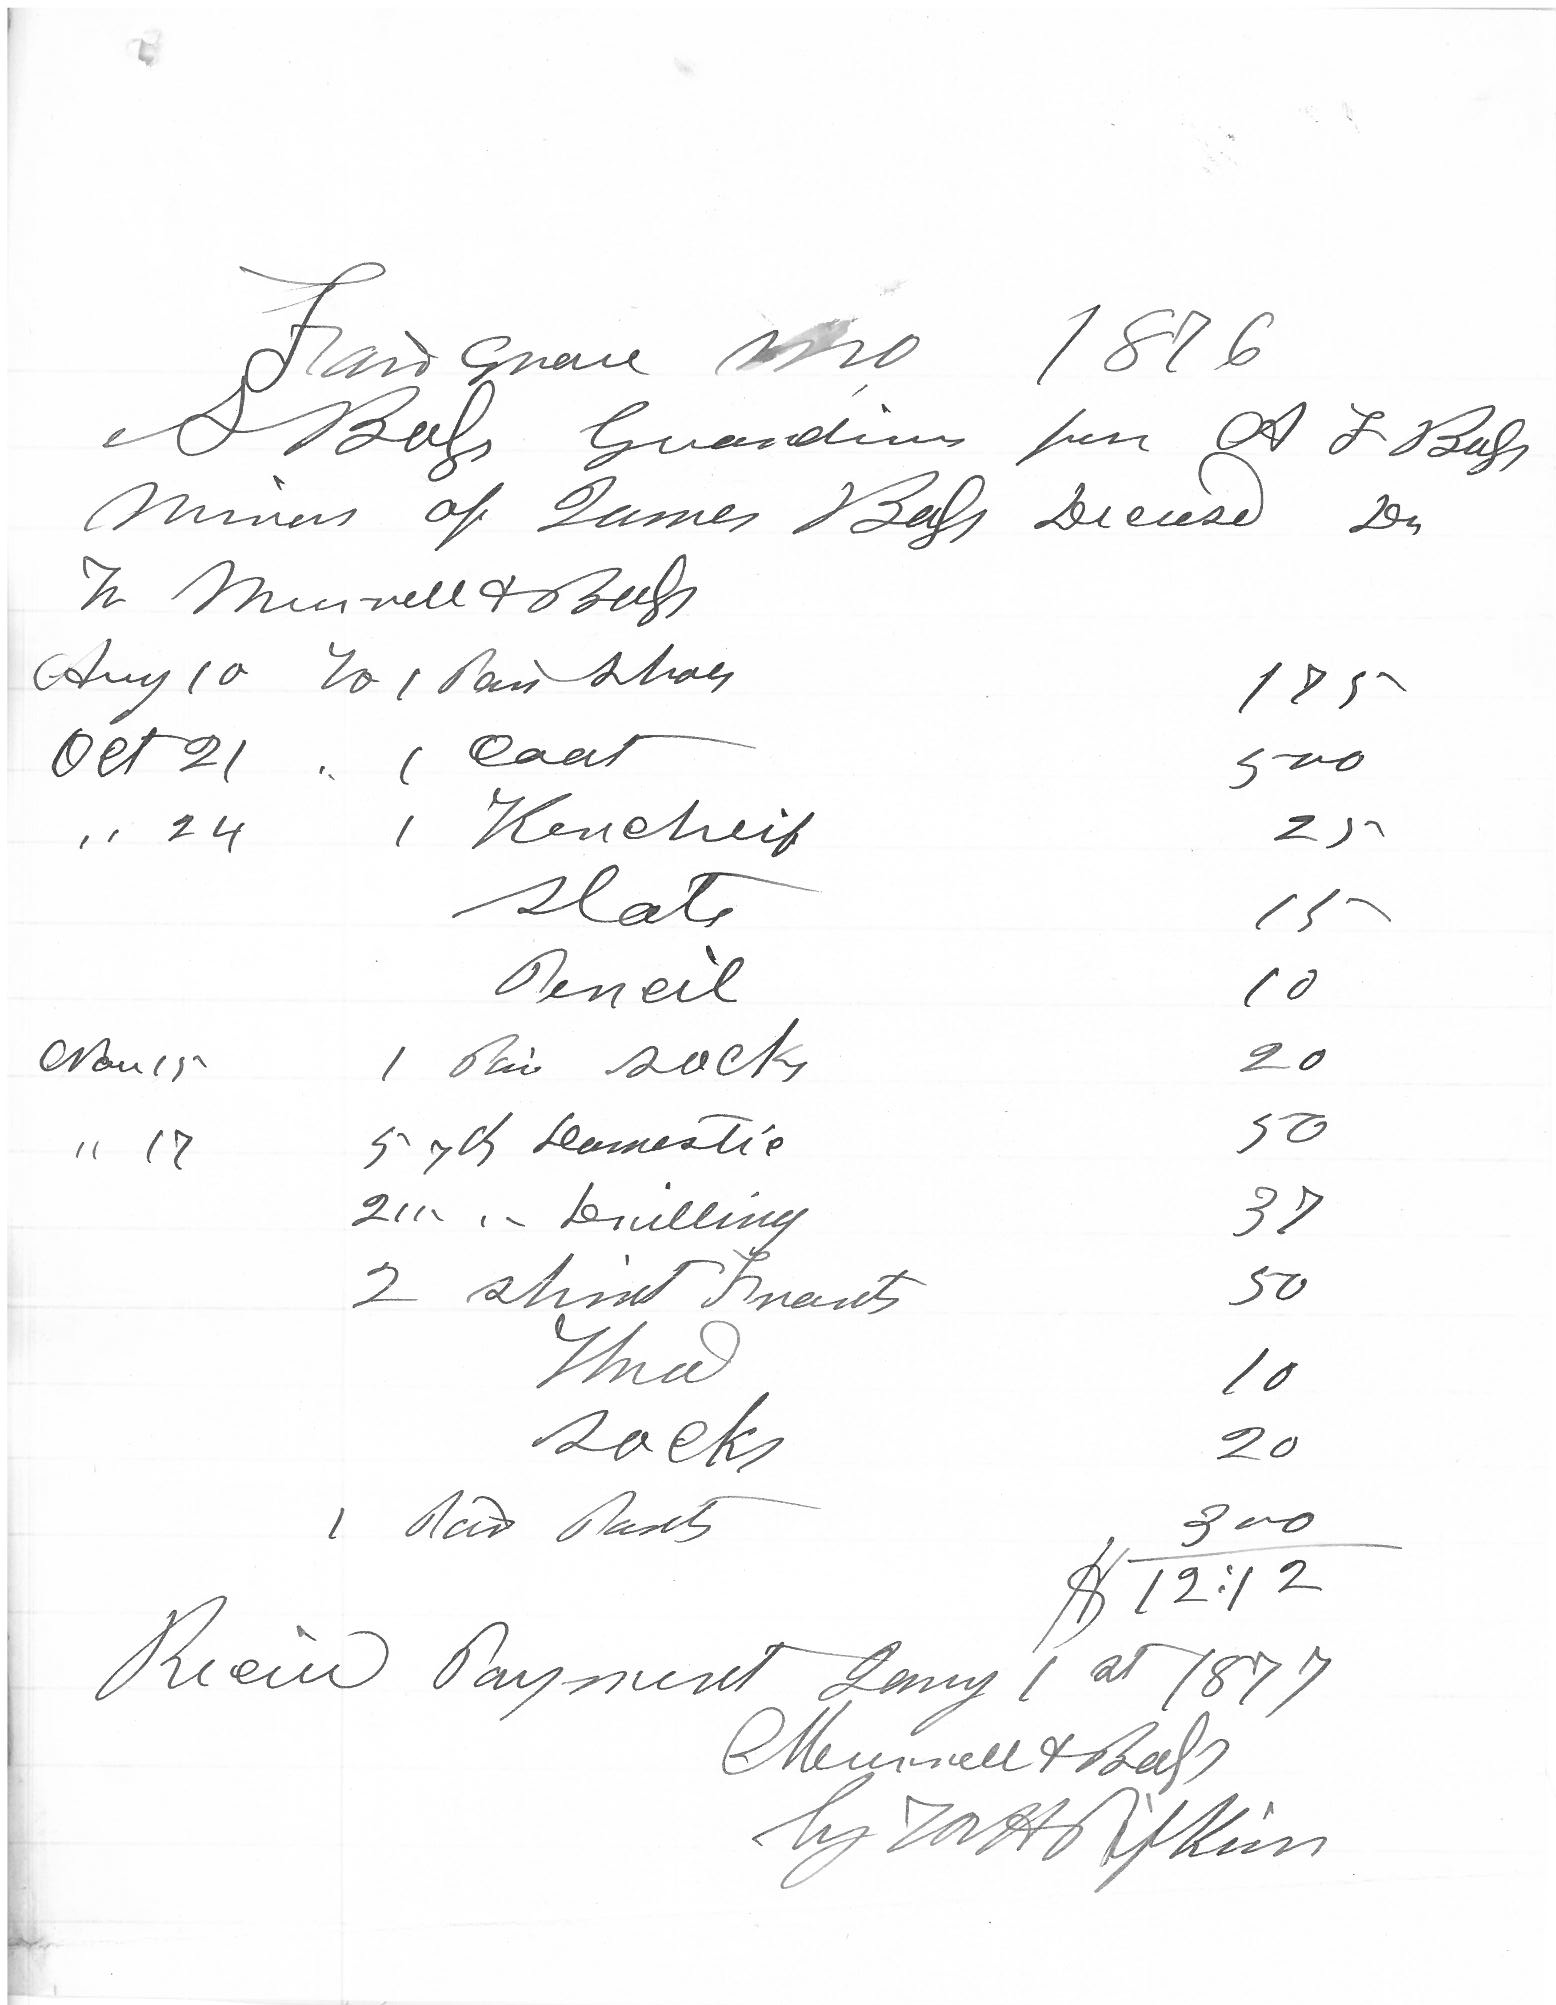 Fair Grove Mo 1876
S Bass Guardian for A F Bass
Minor of James Bass Decesd Dr
To Murrell & Bass
Aug 10 To 1 Pair Shoes 175
Oct 21 " 1 Coat 500
" 24 1 Kercheif 25
Slate 15
Pencil 10
Nov 15 1 Pair Socks 20
" 17 5 yds Domestic 50
2 " " Drilling 37
2 Shirt Fronts 50
Thred 10
Socks 20
1 Pair Pants 300
$12:12
Recivd Payment Jany 1 st 1877
Murrell & Bass
by